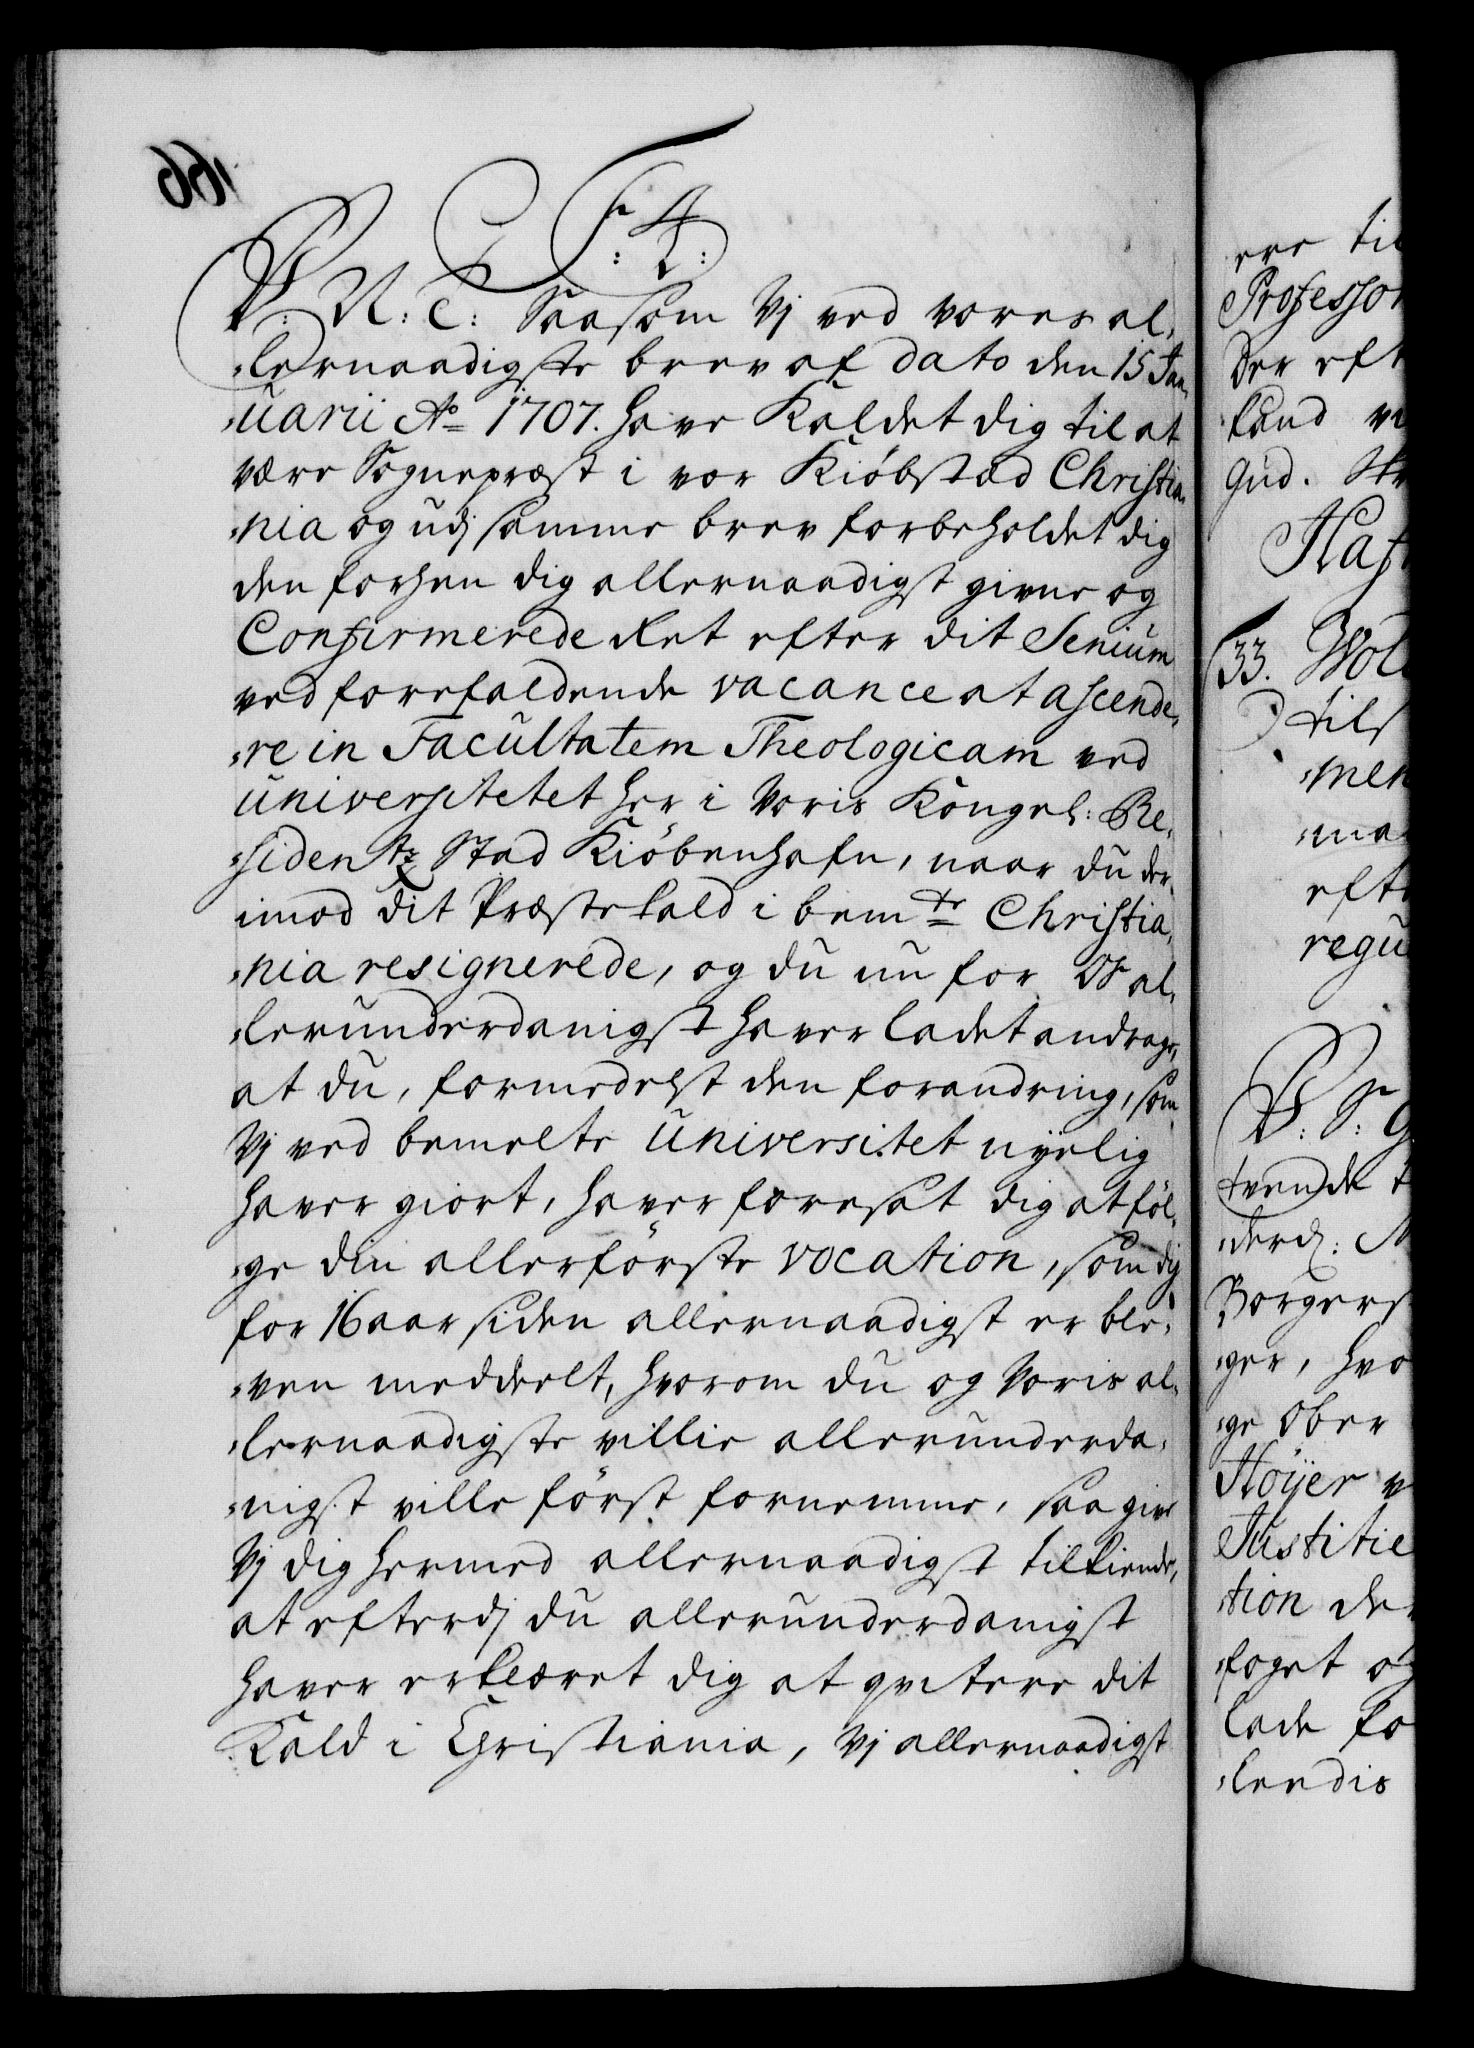 166
F: 4.
P: N: C: Saasom Vj ved vores al,
„lernaadigste brev af dato den 15 Jan,
„uarii Ao 1707. have Kaldet dig til at
være Sognepræst i vor Kiöbstæd Christia,
„nia og udj samme brev forbeholdet dig
den forhen dig allernaadigst givne og
Confirmerede Ret efter dit Senium
ved forefaldende vacance at ascende,
„re in Facultatem Theologicam ved
universitetet her i Voris Kongel: Re,
„sidentz Stad Kiöbenhafn, naar du der,
imod dit Præstekald i bemte Christia,
„nia resignerede, og du nu for Os al,
„lerunderdanigst haver ladet andrage,
at du, formedelst den forandring, som
Vj ved bemelte universitet nyelig
haver giort, haver foresat dig at föl,
„ge din allerförste vocation, som dig
for 16 aar siden allernaadigst er ble,
„ven meddeelt, hvorom du og Voris al,
„lernaadigste villie allerunderda,
„nigst ville först fornemme, saa give
Vj dig hermed allernaadigst tilkiende,
at efterdj du allerunderdanigst
haver erklæret dig at qvitere dit
Kald i Christiania, Vj allernaadigst
ere til
Professor
Der eft
kand
Gud.
Haf
33. Wol
tils
„men
„ma
efte
regu
P: S: G
tvende
„derd:
Borgers
„ger, hvo
„ge Ober
Höyer
Justitie
„tion der
„foget og
lade fo
„lendis